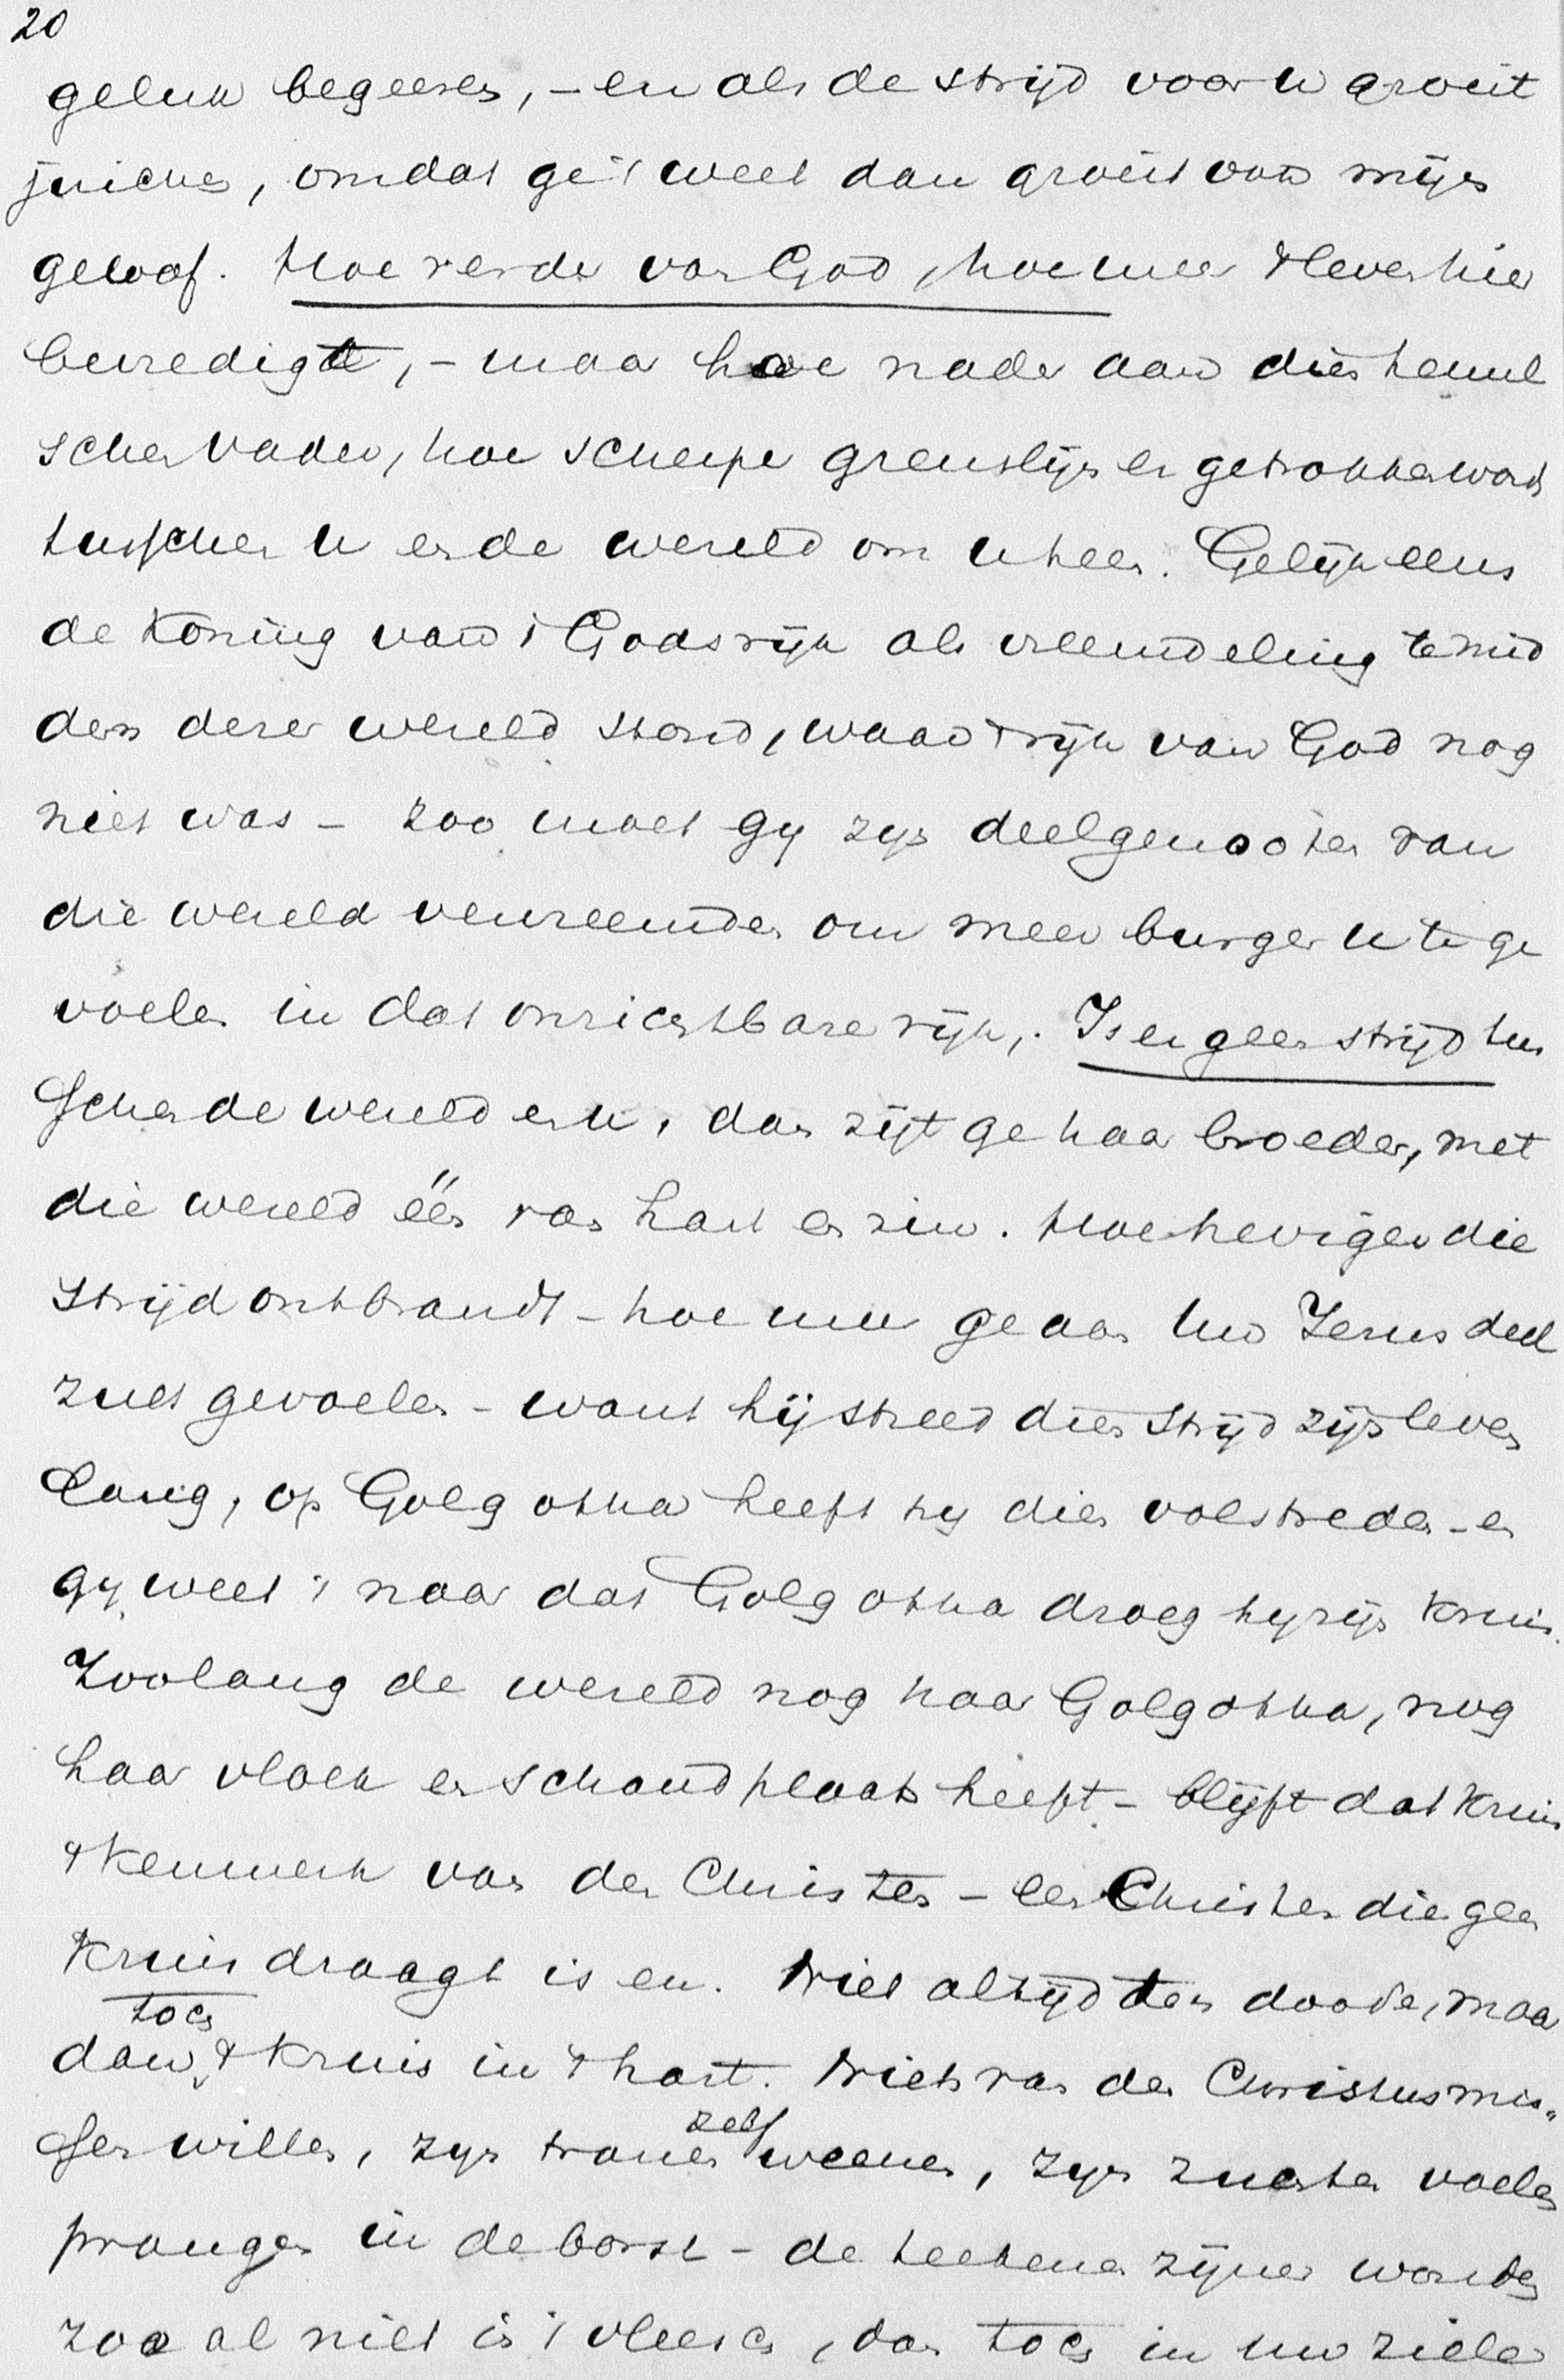 20
geluk begeeren, - en als de strijd voor u groeit
juichen, omdat ge 't weet dan groeit ook mijn
geloof. Hoe verder van God, hoe meer 't leven hier
bevredigde, - maar hoe nader aan dien hemel
schen Vader, hoe scherper grenslijn er getrokken wordt
tusschen u en de wereld om u heen. Gelijk eens
de Koning van 't Godsrijk als vreemdeling te mid
den dezer wereld stond, waar 't rijk van God nog
niet was - zoo moet gy zyn deelgenooten van
die wereld vervreemden om meer burger u te ge
voelen in dat onzichtbare rijk,. Is er geen strijd tus
schen de wereld en u, dan zijt ge haar broeder, met
die wereld één van hart en zin. Hoe heviger die
strijd ontbrandt - hoe meer ge aan uw Jezus deel
zult gevoelen - want hij streed dien strijd zijn leven
lang, op Golgotha heeft hy dien volstreden - en
gy weet 't naar dat Golgotha droeg hy zijn kruis.
Zoolang de wereld nog haar Golgotha, nog
haar vloek en schandplaats heeft - blijft dat kruis
't kenmerk van den Christen - een Christen die geen
kruis draagt is er. Niet altijd ten doode, maar
dan toch 't kruis in 't hart. Niets van den Christus mis„
sen willen, zyn tranen zelf weenen, zyn zuchten voelen
prangen in de borst - de teekenen zijner wonden
zoo al niet in 't vleesch, dan toch in uw ziele